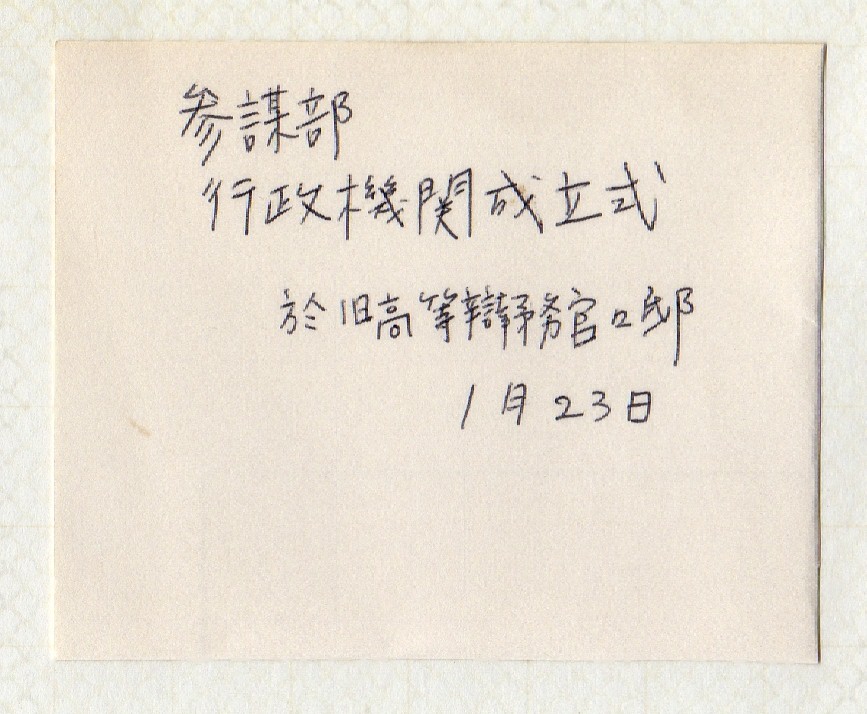 参謀部
行政機関成立式
於旧高等辯務官口邸
1月23日